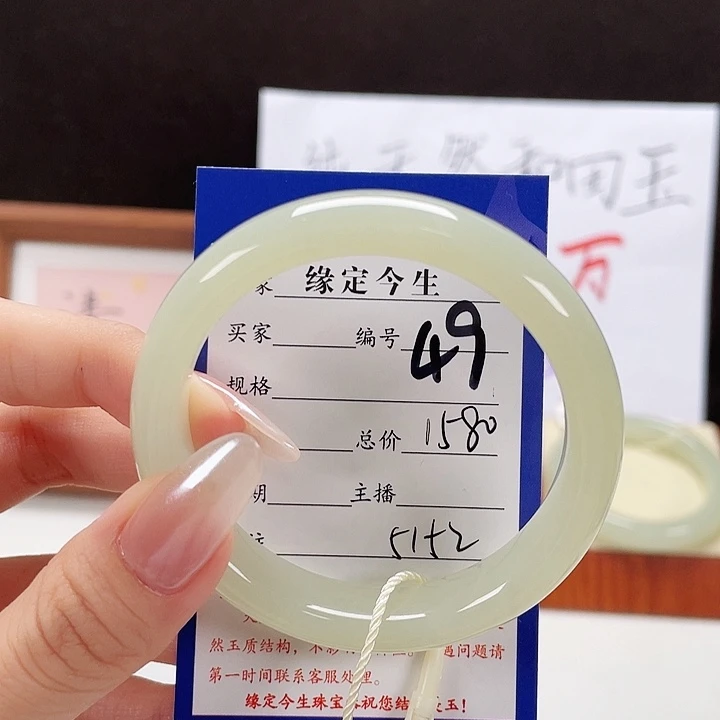 然和田玉
万
家 缘定今生
买家 编号 49
规格
总价 1580
期 主播
5152
然玉质结构,不影 遇问题请
第一时间联系客服处理。
缘定今生珠宝 祝您结 美玉!